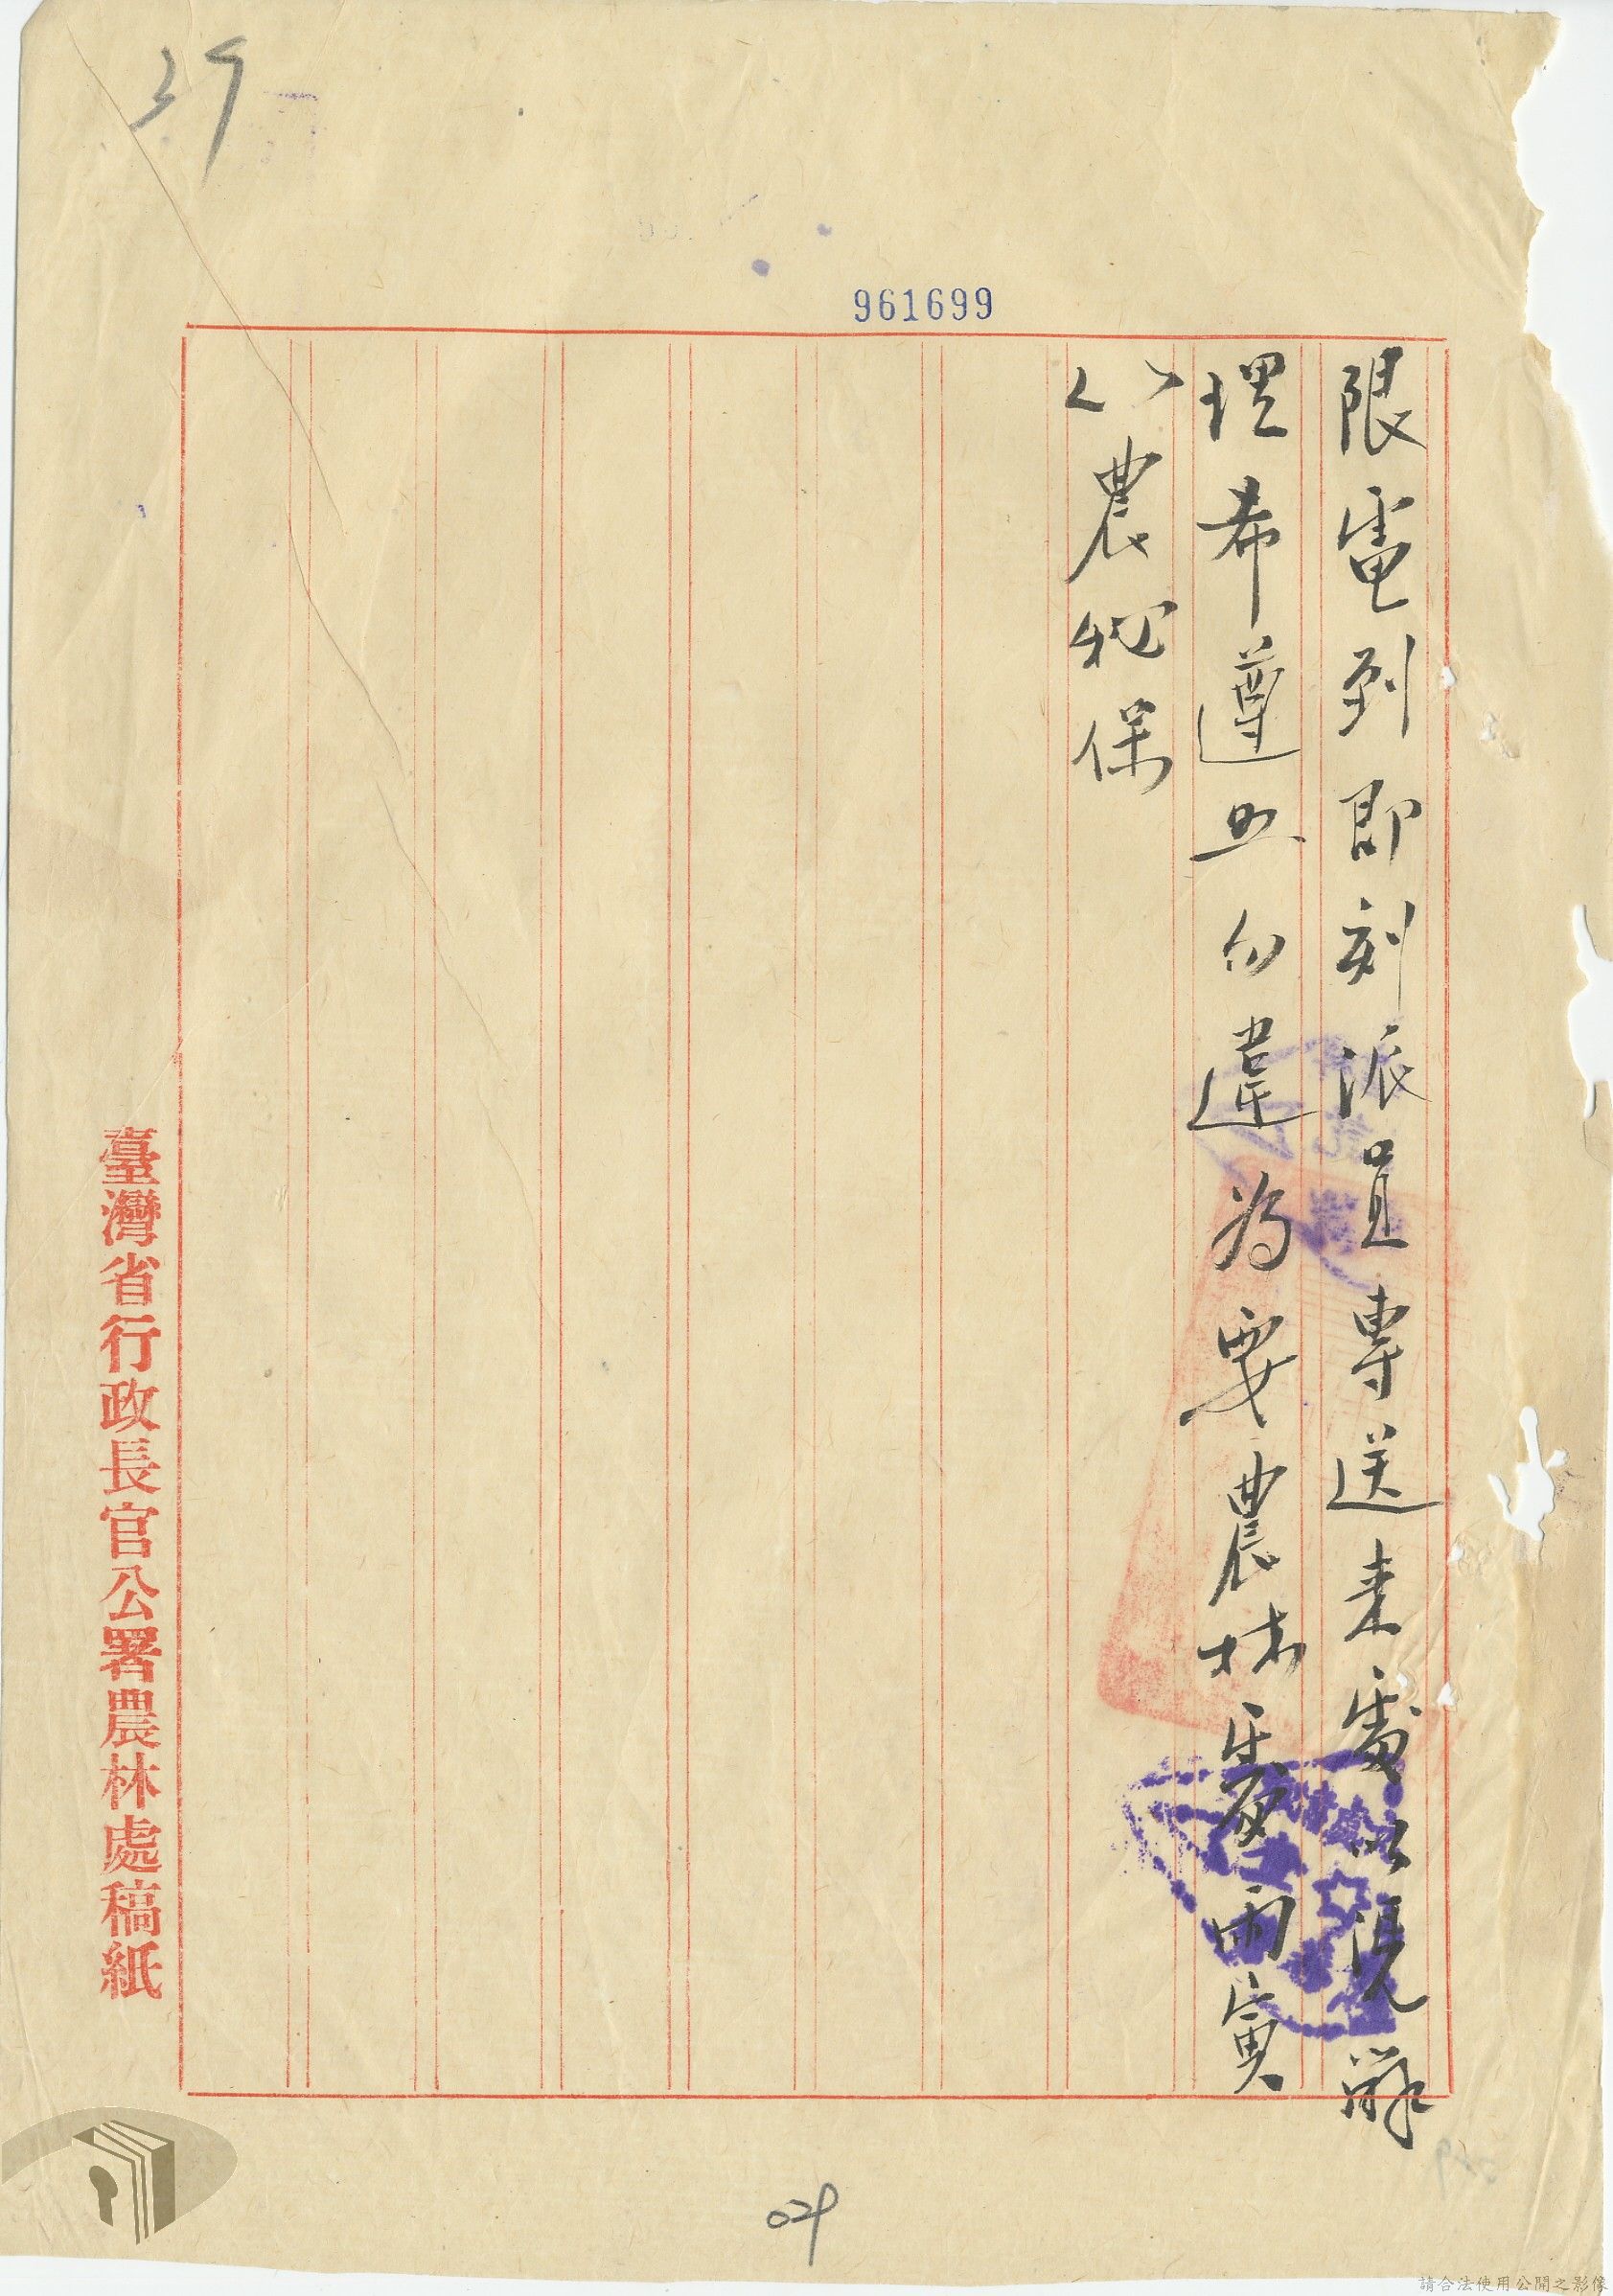 39
961699
限電到即刻派員專送來處以憑辦
理希遵照勿違為要農林處丙寅
農秘保
臺灣省行政長官公署農林處稿紙
029
請合法使用公開之影像